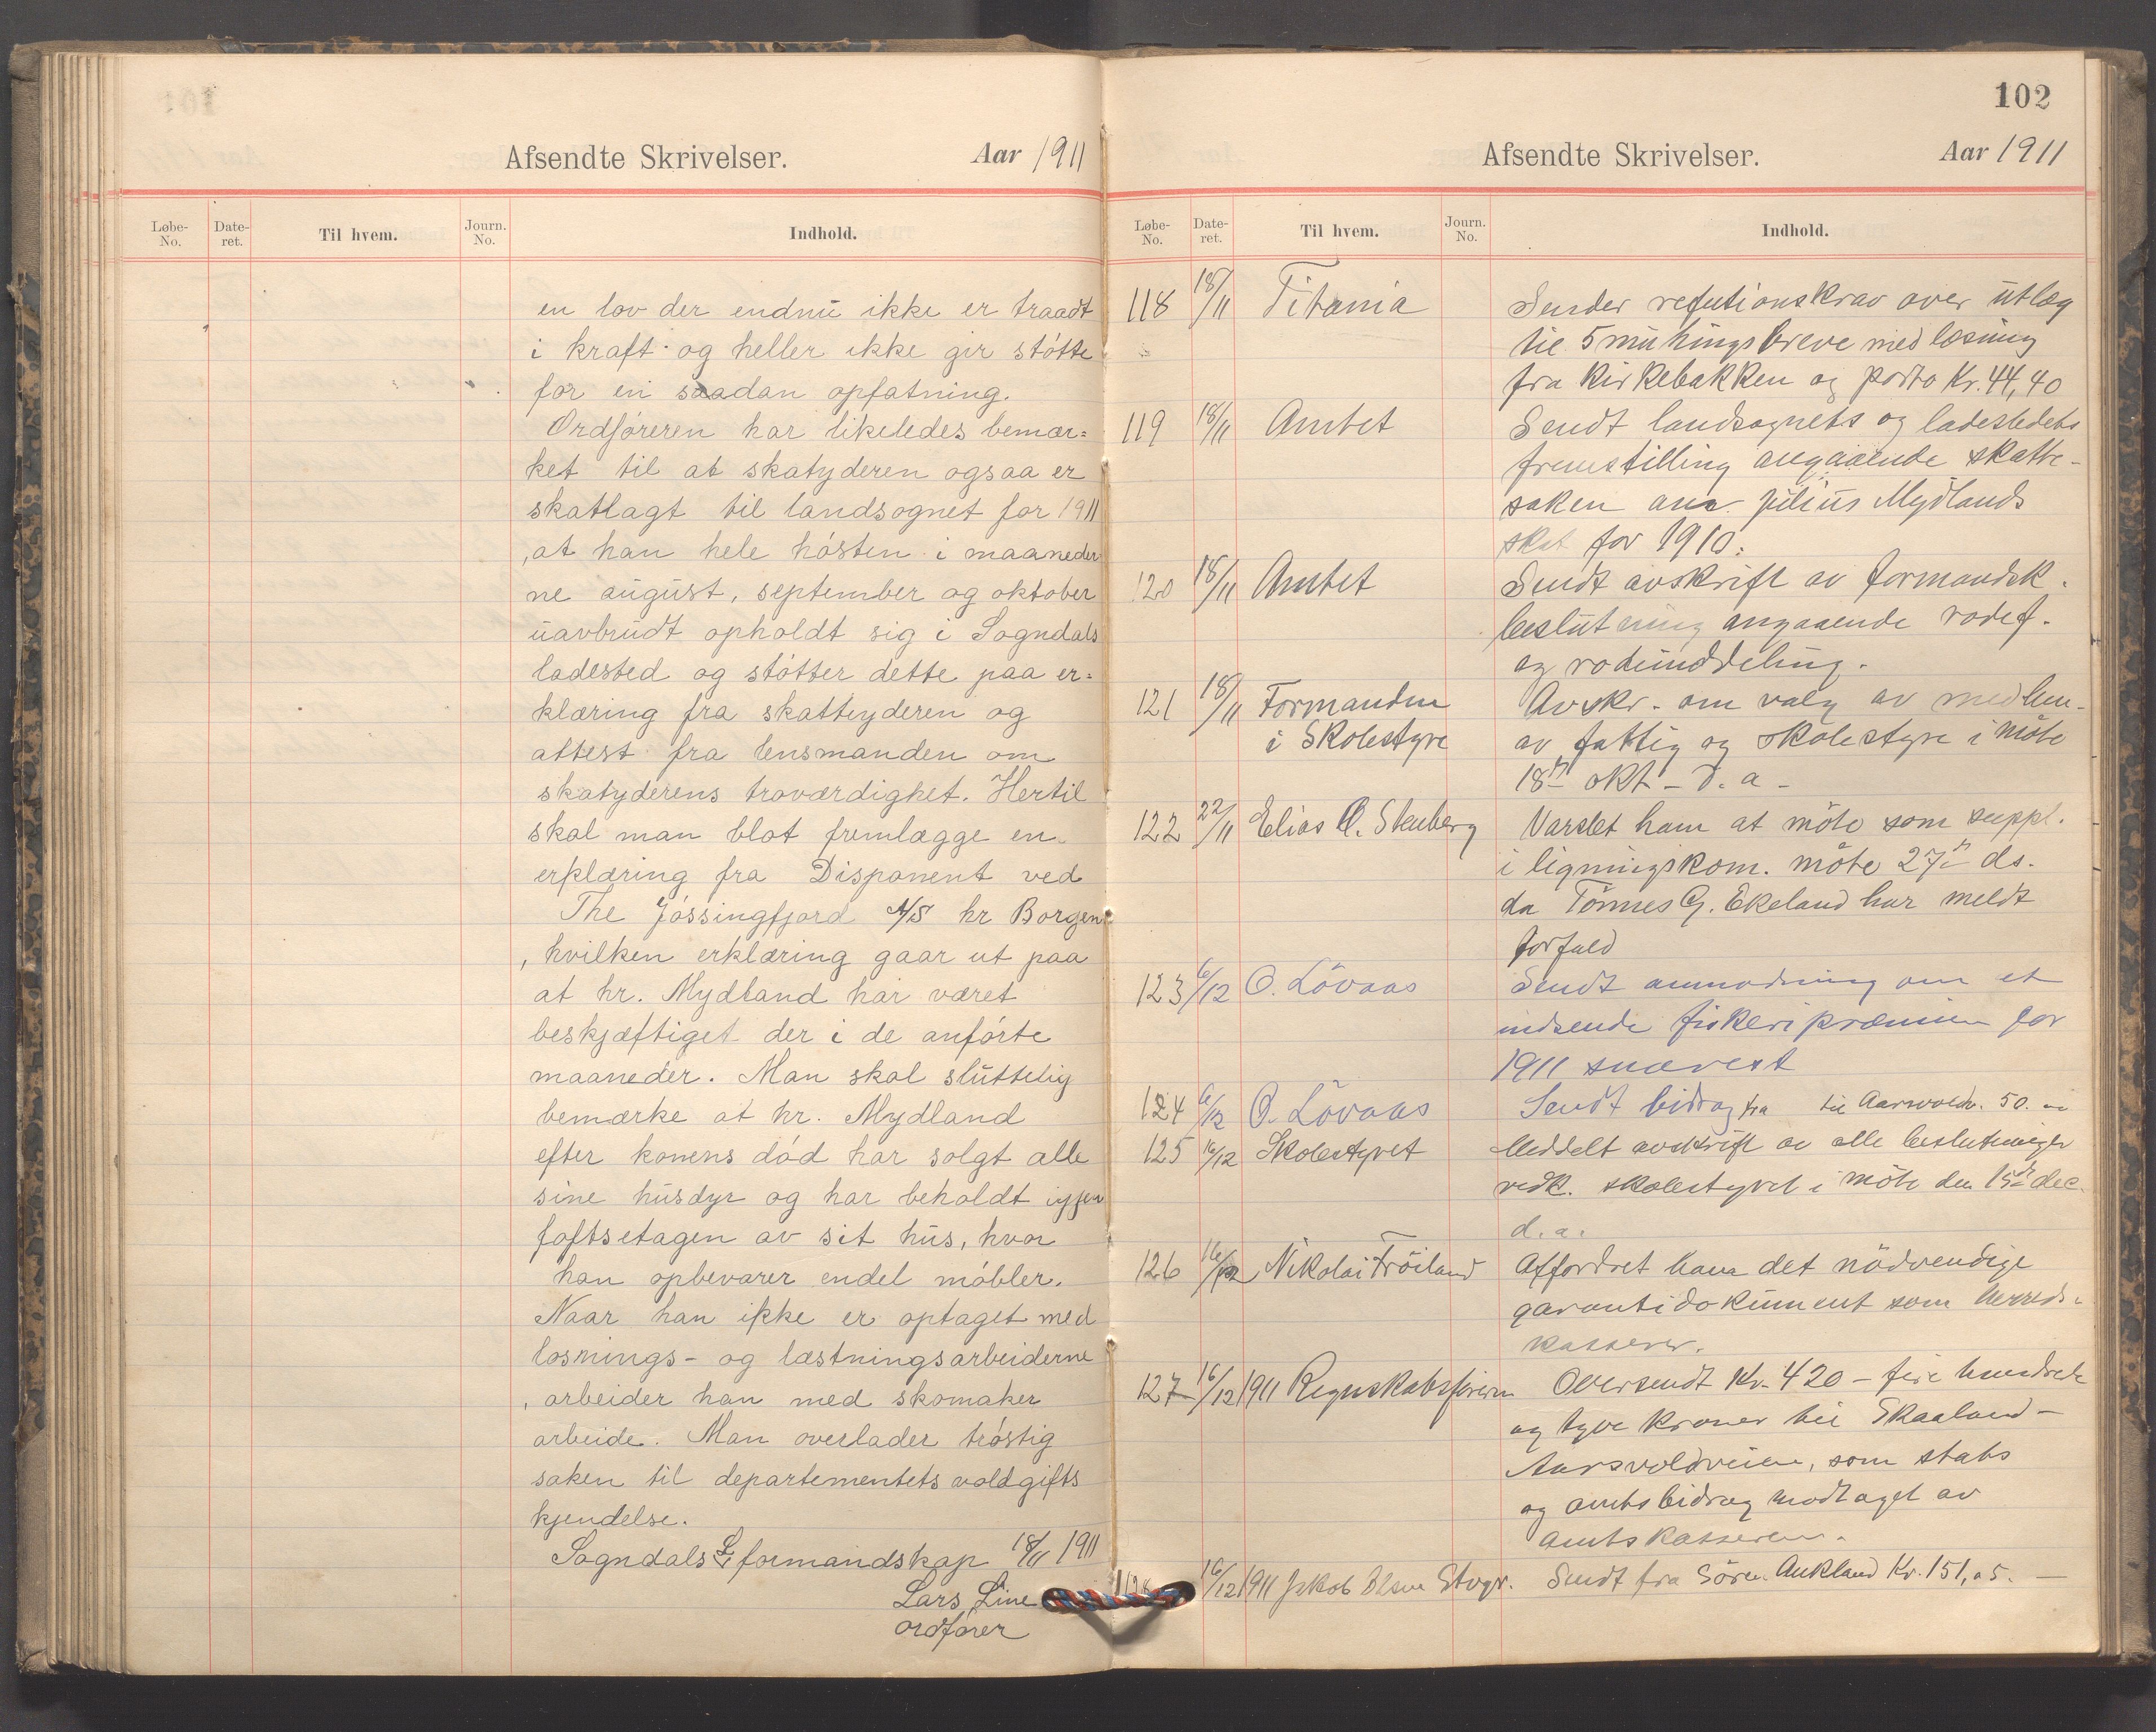 Afsendte Skrivelser. Aar 1911
Løbe-No. Date-ret. Til hvem. Journ. No. Indhold.
en lov der endnu ikke er traadt
i kraft og heller ikke gir støtte
for en saadan opfatning.
Ordføreren har likeledes bemær=
ket til at skatyderen ogsaa er
skatlagt til landsognet for 1911
, at han hele høsten i maaneder
ne august, september og oktober
uavbrudt opholdt sig i Sogndals
ladested og støtter dette paa er=
klæring fra skatteyderen og
attest fra lensmanden om
skatyderens troværdighet. Hertil
skal man blot fremlægge en
erklæring fra Disponent ved
The Jøssingfjord A/S hr Borgen
, hvilken erklæring gaar ut paa
at hr. Mydland har været
beskjæftiget der i de anførte
maaneder. Man skal sluttelig
bemærke at hr. Mydland
efter konens død har solgt alle
sine husdyr og har beholdt igjen
loftsetagen av sit hus, hvor
han opbevarer endel møbler.
Naar han ikke er optaget med
losnings- og læstningsarbeiderne
, arbeider han med skomaker
arbeide. Man overlader trøstig
saken til departementets voldgifts
kjendelse.
Sogndals L. formandskap 18/11 1911
Lars Line
ordfører
102
Afsendte Skrivelser. Aar 1911
Løbe-No. Date-ret. Til hvem. Journ. No. Indhold.
118 18/11 Titania Sender refutionskrav over utlæg
til 5 mutingsbreve med løsning
fra Kirkebakken og porto Kr. 44,40
119 18/11 Amtet Sendt landsognets og ladestedets
fremstilling angaaende skatte-
saken ang. Julius Mydlands
skat for 1910.
120 18/11 Amtet Sendt avskrift av formandsk.
beslutning angaaende rodef.
og rodeinddeling.
121 18/11 Formanden Avskr. om valg av medlem.
i Skolestyre av fattig og skolestyre i møte
18de okt - d. a -
122 22/11 Elias O. Stenberg Varslet ham at møte som suppl.
i ligningskom. møte 27de ds.
da Tønnes G. Ekeland har meldt
forfald
123 6/12 O. Lövaas Sendt anmodning om at
indsende fiskeripræmien for
1911 snarest
124 6/12 O. Lövaas Sendt bidrag fra til Aarsvoldv. 50.
125 16/12 Skolestyret Meddelt avskrift av alle beslutninger
vedk. skolestyret i møte den 15de dec.
d. a.
126 16/12 Nikolai Fröiland Affordret ham det nödvendige
garantidokument som herreds-
kasserer.
127 16/12 1911 Regnskabsføreren Oversendt Kr. 420 - fire hundrede
og tyve kroner til Skaaland-
Aarsvoldveien, som stats
og amtsbidrag modtaget av
Amtskassereren.
128 16/12 1911 Jakob Olsen Stvgr. Sendt fra Sören Aukland Kr. 151,05. -